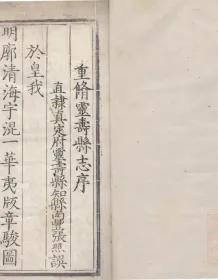 重脩靈壽縣志序
直隸真定府靈壽縣知縣南豐張照譔
於皇我
明廓清海宇混一華夷版章駿圖